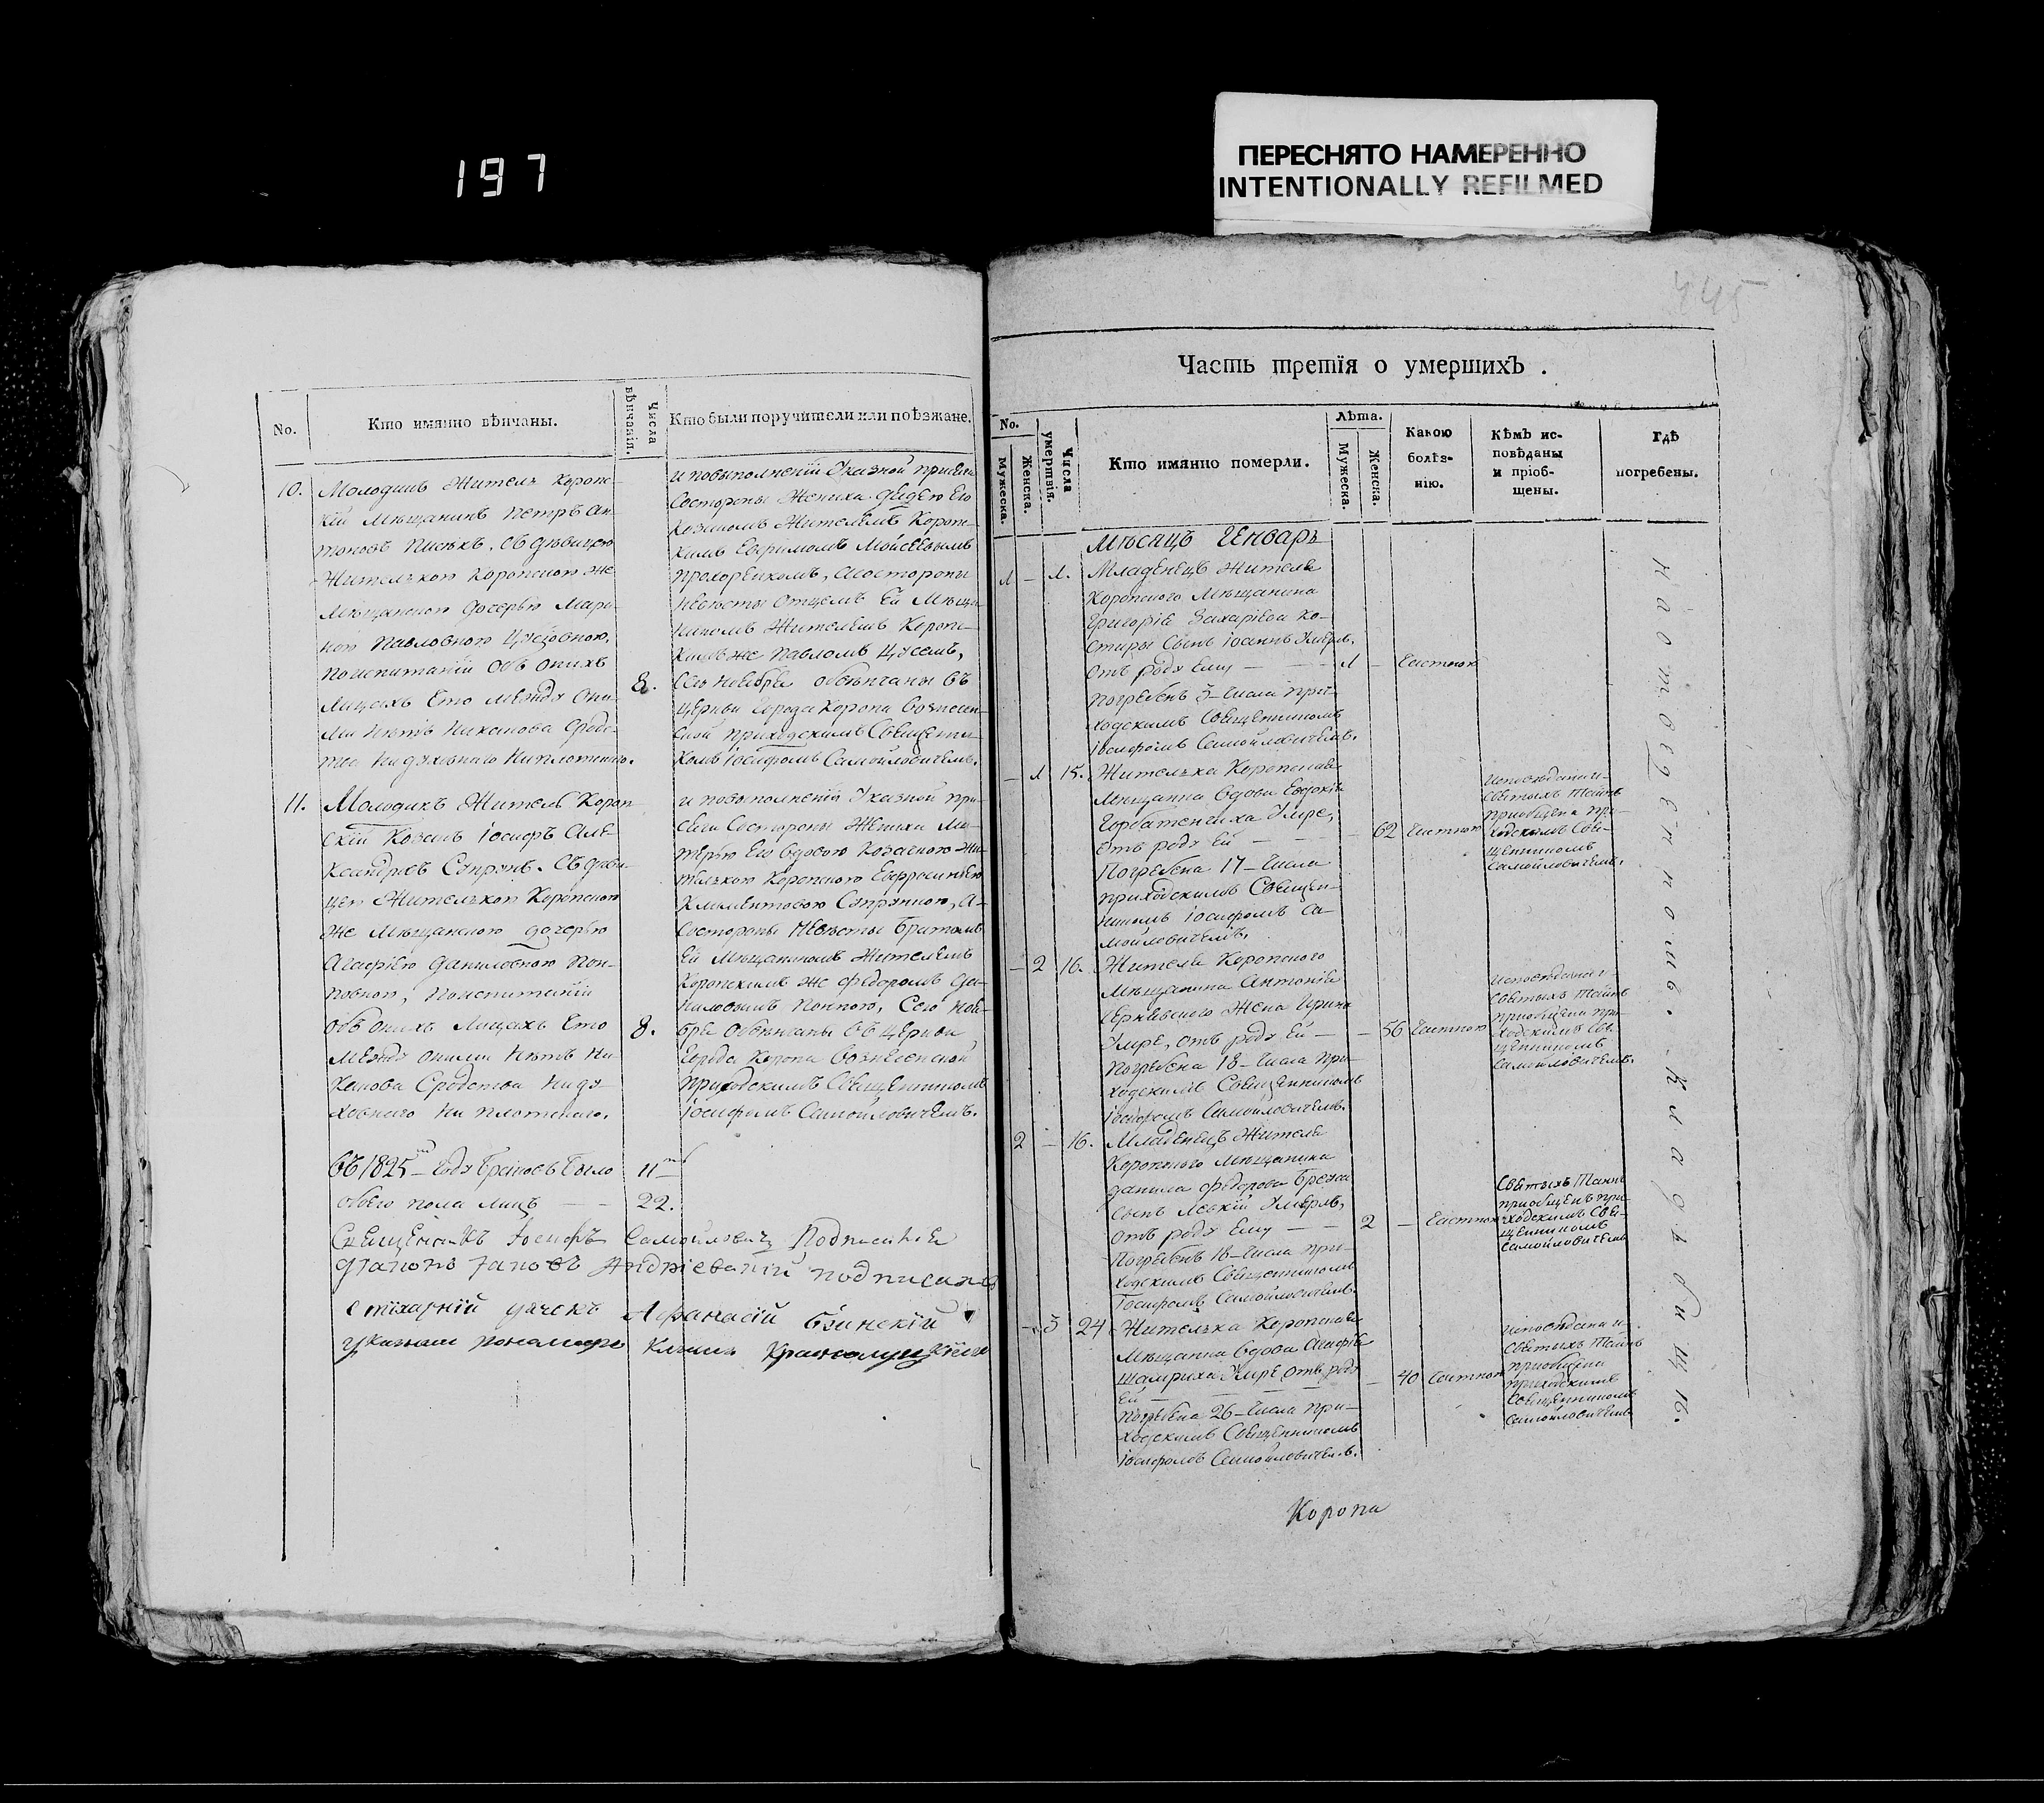 197
ПЕРЕСНЯТО НАМЕРЕННО
INTENTIONALLY REFILMED
445
No.
Кто имянно вѣнчаны.
Числа вѣнчанія.
Кто были поручители или поѣзжане.
10.
Молодикъ Житель Короп-
скій Мѣщанинъ Петръ Ан-
тоновъ съ дѣвицею
Жителькою Коропскою же
Мѣщанскою дочерью Мари-
ною Павловною
По испытаніи объ оныхъ
Лицахъ Что между они-
ми нѣтъ никакова сродс-
тва ни духовнаго ни плотскаго.
8.
и по выполненіи Указной присяги
Со стороны Жениха дядею Его
Козакомъ Жителемъ Короп-
скимъ Ефимомъ Мойсеевымъ
Прохоренкомъ, А со стороны
Невѣсты Отцемъ Ей Мѣща-
ниномъ Жителемъ Короп-
скимъ же Павломъ
Сего Ноября обвѣнчаны въ
Церкви города Коропа Вознесен-
ской приходскимъ Священни-
комъ Іосифомъ Самойловичемъ.
11.
Молодикъ Житель Короп-
скій Козакъ Іосифъ Але-
ксандровъ Супрунъ. Съ дѣви-
цею Жителькою Коропскою
же Мѣщанскою дочерью
Агафіею Даниловною
По испытаніи
объ оныхъ Лицахъ Что
между оными нѣтъ ни-
какова Сродства ни ду-
ховнаго ни плотскаго.
8.
и по выполненіи Указной при-
сяги Со стороны Жениха Ма-
терью Его вдовою Козачкою Жи-
телькою Коропскою Евфросиніею
Климентовою Супруною, А
Со стороны Невѣсты братомъ
Ей Мѣщаниномъ Жителемъ
Коропскимъ же Федоромъ Да-
ниловымъ Сего Ноя-
бря Обвѣнчаны въ Церкви
Города Коропа Вознесенской
приходскимъ Священникомъ
Іосифомъ Самойловичемъ.
Въ 1825 году браковъ было 11
обоего пола лицъ — 22.
Священникъ Іосифъ Самойловичъ Подписался
Діаконъ Іаковъ Андріевскій подписался
стихарній дячокъ Афанасій
указный пономарь Климъ
Часть третія о умершихъ.
No.
Мужеска.
Женска.
Числа умертвія.
Кто имянно померли.
Лѣта.
Мужеска.
Женска.
Какою
болѣз-
нію.
Кѣмъ ис-
повѣданы
и пріоб-
щены.
Гдѣ
погребены.
Мѣсяцъ Генварь
1 — 1.
Младенецъ Жителя
Коропского Мѣщанина
Григорія Захаріева Ко-
стыры Сынъ Іоаннъ Умеръ.
Отъ роду Ему — 1 —
Погребенъ 3 Числа при-
ходскимъ Священникомъ
Іосифомъ Самойловичемъ.
— 1 15.
Жителька Коропская
Мѣщанка Вдова Евдокія
Горбатенчиха Умре,
Отъ роду Ей — 62
Погребена 17 Числа
приходскимъ Священ-
никомъ Іосифомъ Са-
мойловичемъ.
Исповѣдана и
Святыхъ Тайнъ
приобщена при-
ходскимъ Свя-
щенникомъ
Самойловичемъ.
— 2 16.
Жителя Коропского
Мѣщанина Антонія
Чернявского Жена Ирина
Умре, отъ роду Ей — 56
Погребена 18 Числа при-
ходскимъ Священникомъ
Іосифомъ Самойловичемъ.
Исповѣдана и
Святыхъ Тайнъ
приобщена при-
ходскимъ Свя-
щенникомъ
Самойловичемъ.
2 — 16.
Младенецъ Жителя
Коропского Мѣщанина
Данила Федорова
Сынъ Умеръ,
отъ роду Ему — 2 —
Погребенъ 18 Числа при-
ходскимъ Священникомъ
Іосифомъ Самойловичемъ.
Святыхъ Таинъ
приобщенъ при-
ходскимъ Свя-
щенникомъ
Самойловичемъ
— 3 24
Жителька Коропская
Мѣщанка Вдова Агафія
Умре, Отъ роду
Ей — 40
Погребена 26 Числа при-
ходскимъ Священникомъ
Іосифомъ Самойловичемъ.
Исповѣдана и
Святыхъ Тайнъ
приобщена
приходскимъ
Священникомъ
Самойловичемъ
На отведенномъ. Кладѣбищѣ.
Коропа